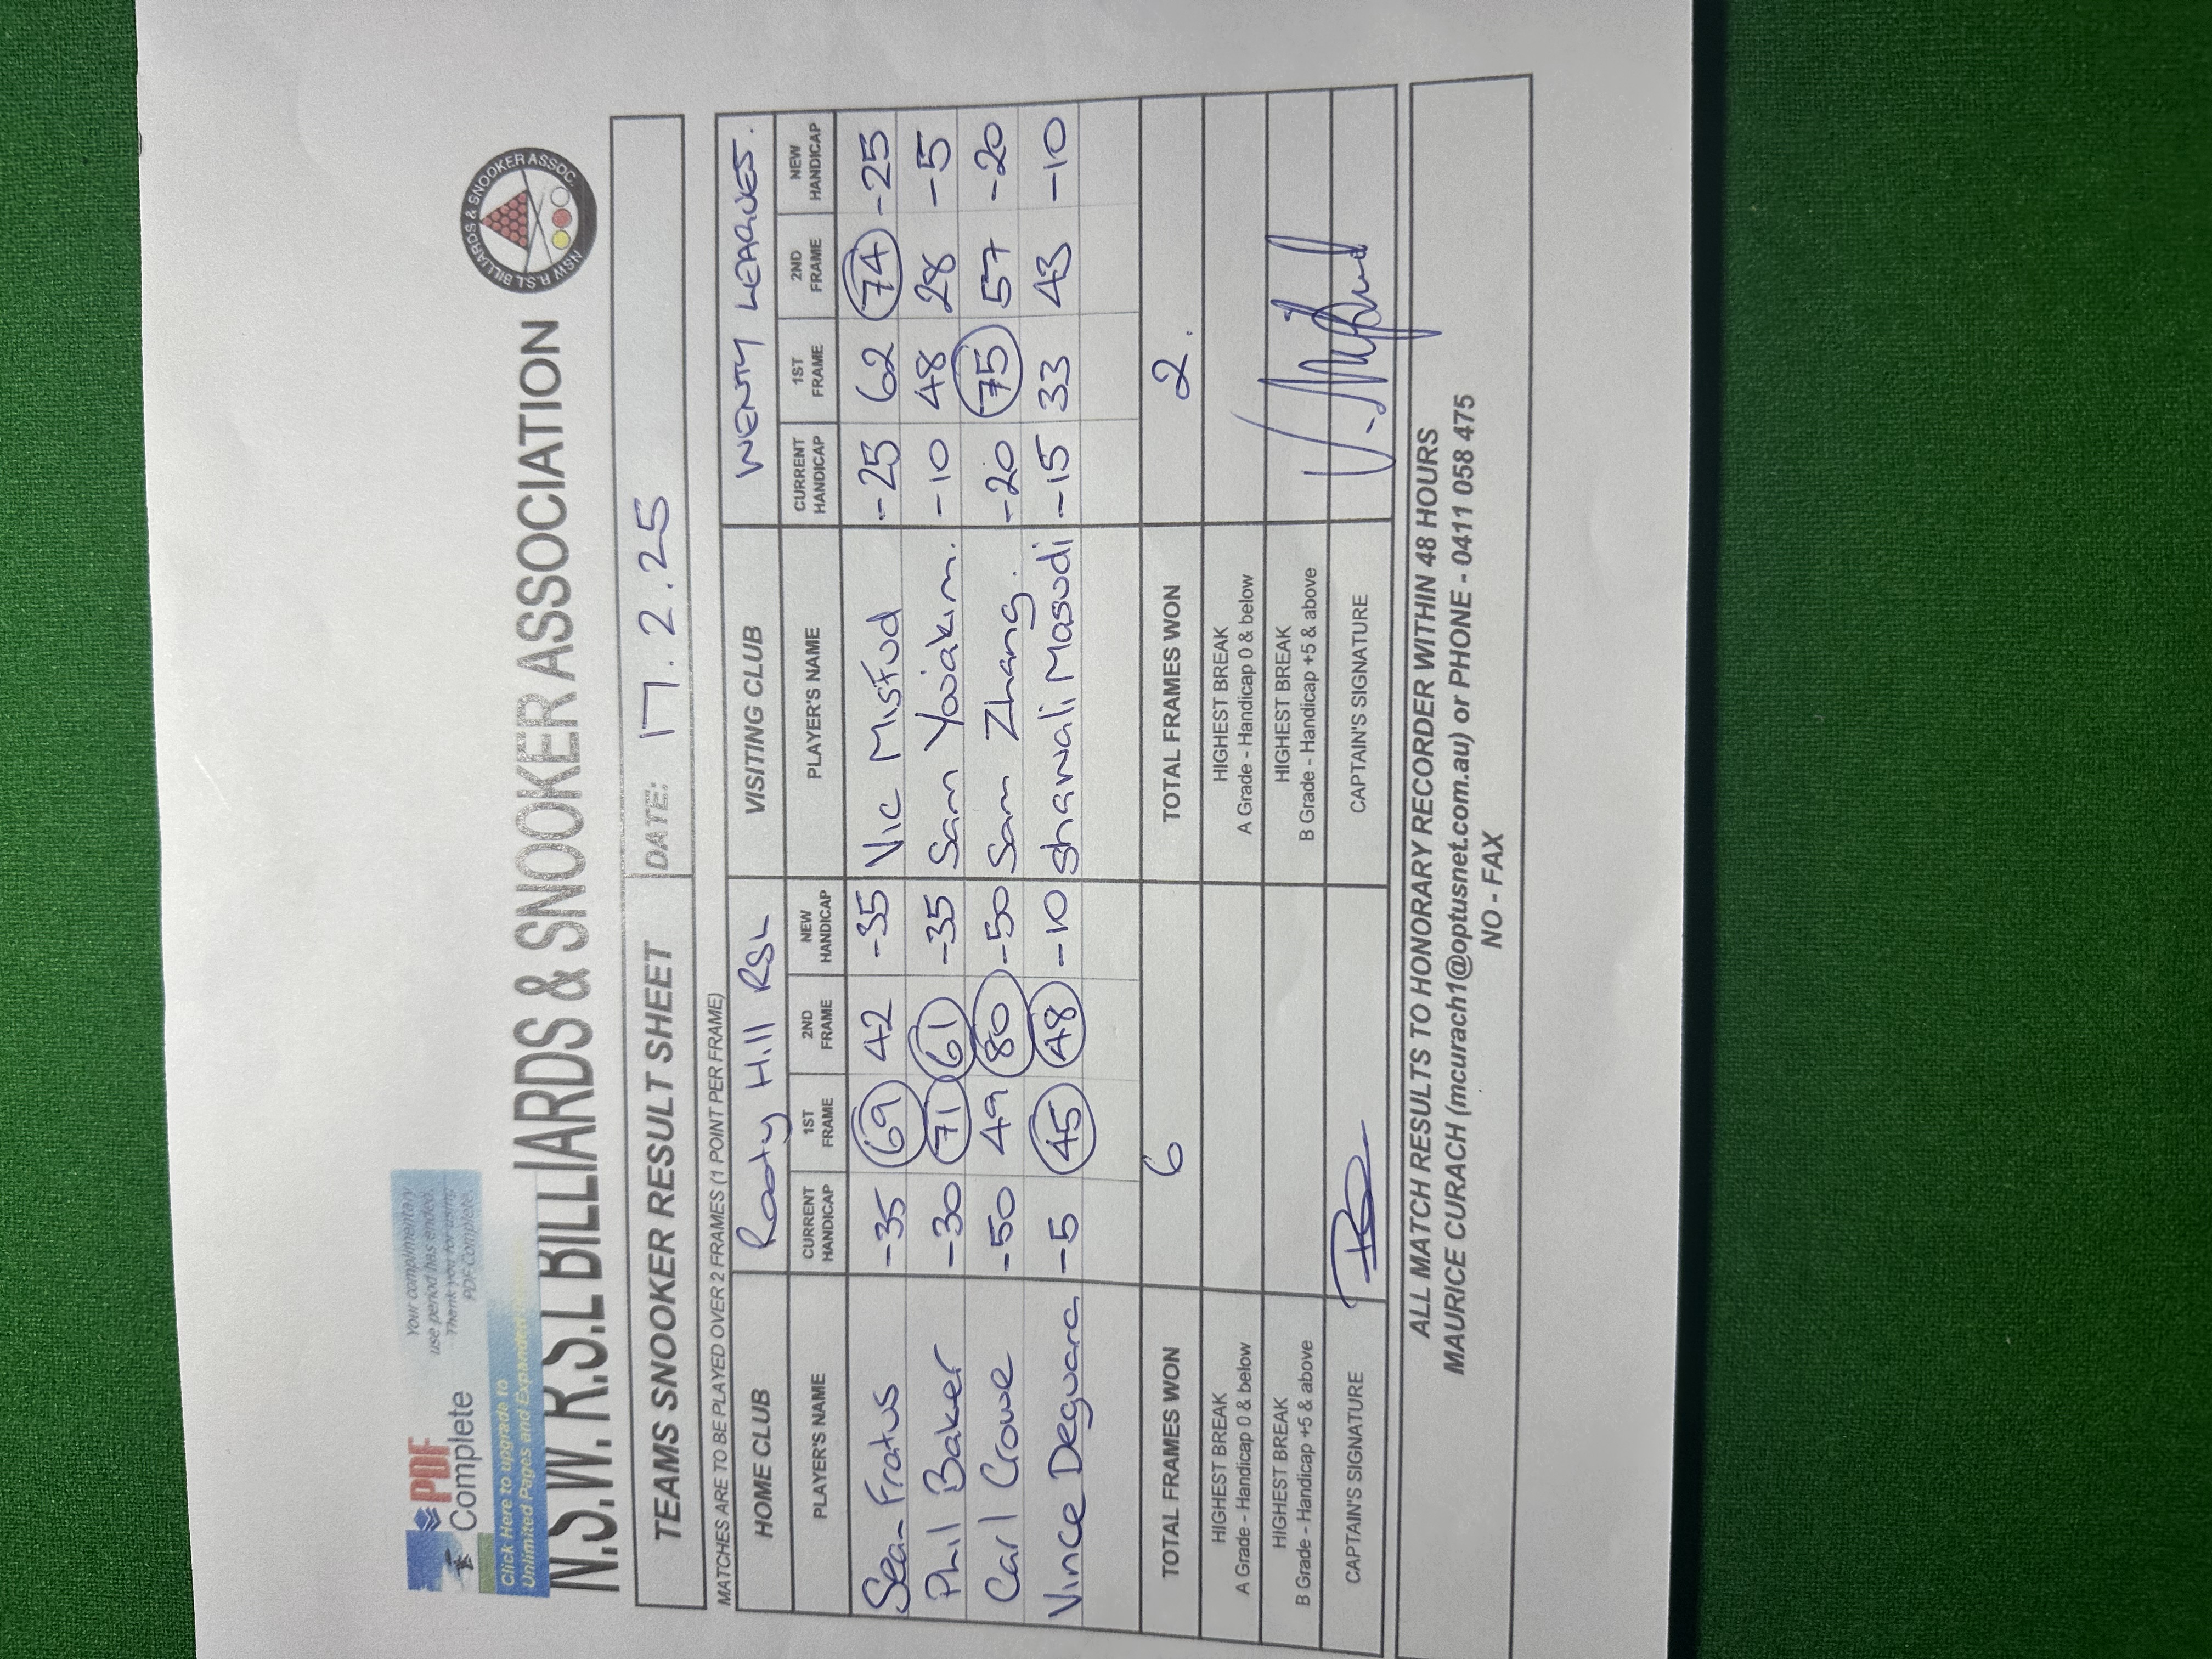 PDF
Complete
Your complimentary
use period has ended.
Thank you for using
PDF Complete.
Click Here to upgrade to
Unlimited Pages and Expanded
N.S.W. R.S.L BILLIARDS & SNOOKER ASSOCIATION
NSW R.S.L BILLIARDS & SNOOKER ASSOC.
TEAMS SNOOKER RESULT SHEET DATE: 17.2.25
MATCHES ARE TO BE PLAYED OVER 2 FRAMES (1 POINT PER FRAME)
HOME CLUB Rooty Hill RSL VISITING CLUB WENTY LEAGUES.
PLAYER'S NAME CURRENT HANDICAP 1ST FRAME 2ND FRAME NEW HANDICAP PLAYER'S NAME CURRENT HANDICAP 1ST FRAME 2ND FRAME NEW HANDICAP
Sean Fratus -35 69 42 -35 Vic Misfud -25 62 74 -25
Phil Baker -30 71 61 -35 Sam Yooakim. -10 48 28 -5
Carl Crowe -50 49 80 -50 Sam Zhang. -20 75 57 -20
Vince Deguara -5 45 48 -10 Shawali Masudi -15 33 43 -10
TOTAL FRAMES WON 6 TOTAL FRAMES WON 2.
HIGHEST BREAK HIGHEST BREAK
A Grade - Handicap 0 & below A Grade - Handicap 0 & below
HIGHEST BREAK HIGHEST BREAK
B Grade - Handicap +5 & above B Grade - Handicap +5 & above
CAPTAIN'S SIGNATURE CAPTAIN'S SIGNATURE
ALL MATCH RESULTS TO HONORARY RECORDER WITHIN 48 HOURS
MAURICE CURACH (mcurach1@optusnet.com.au) or PHONE - 0411 058 475
NO - FAX